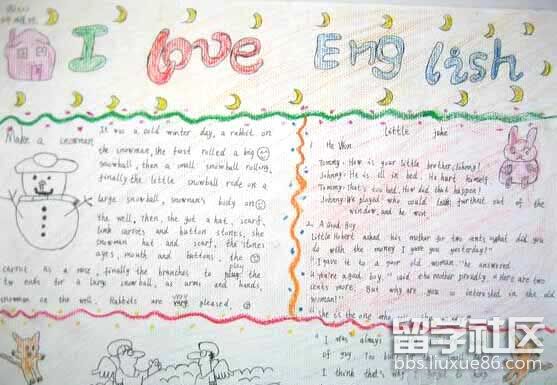 I love English
Make a snowman
It was a cold winter day, a rabbit on
the snowman, the first rolled a big
snowball, then a small snowball rolling,
finally the little snowball rode on a
large snowball, snowman's body on
the well, Then, she got a hat, scarf,
carries and button stones, she
snowman hat and scarf, the stones
ages, mouth and buttons, the
carrot as a nose, finally the branches to plug the
two ends for a large snowball, as arms and hands,
snowman on the well. Rabbits are very pleased.
Little joke
1. He Won
Tommy: How is your little brother, Johnny?
Johnny: He is ill in bed. He hurt himself.
Tommy: That's too bad. How did that happen?
Johnny: We played who could lean furthest out of the
window, and he won.
2. A Good Boy
Little Robert asked his mother for two cents. What did you
do with the money I gave you yesterday?"
"I gave it to a poor old woman," he answered.
"You're a good boy," said the mother proudly. "Here are two
cents more. But why are you so interested in the old
woman?"
She is the one who
I was always
of guy, Too
I think that's why
留学社区
bbs.liuxue86.com